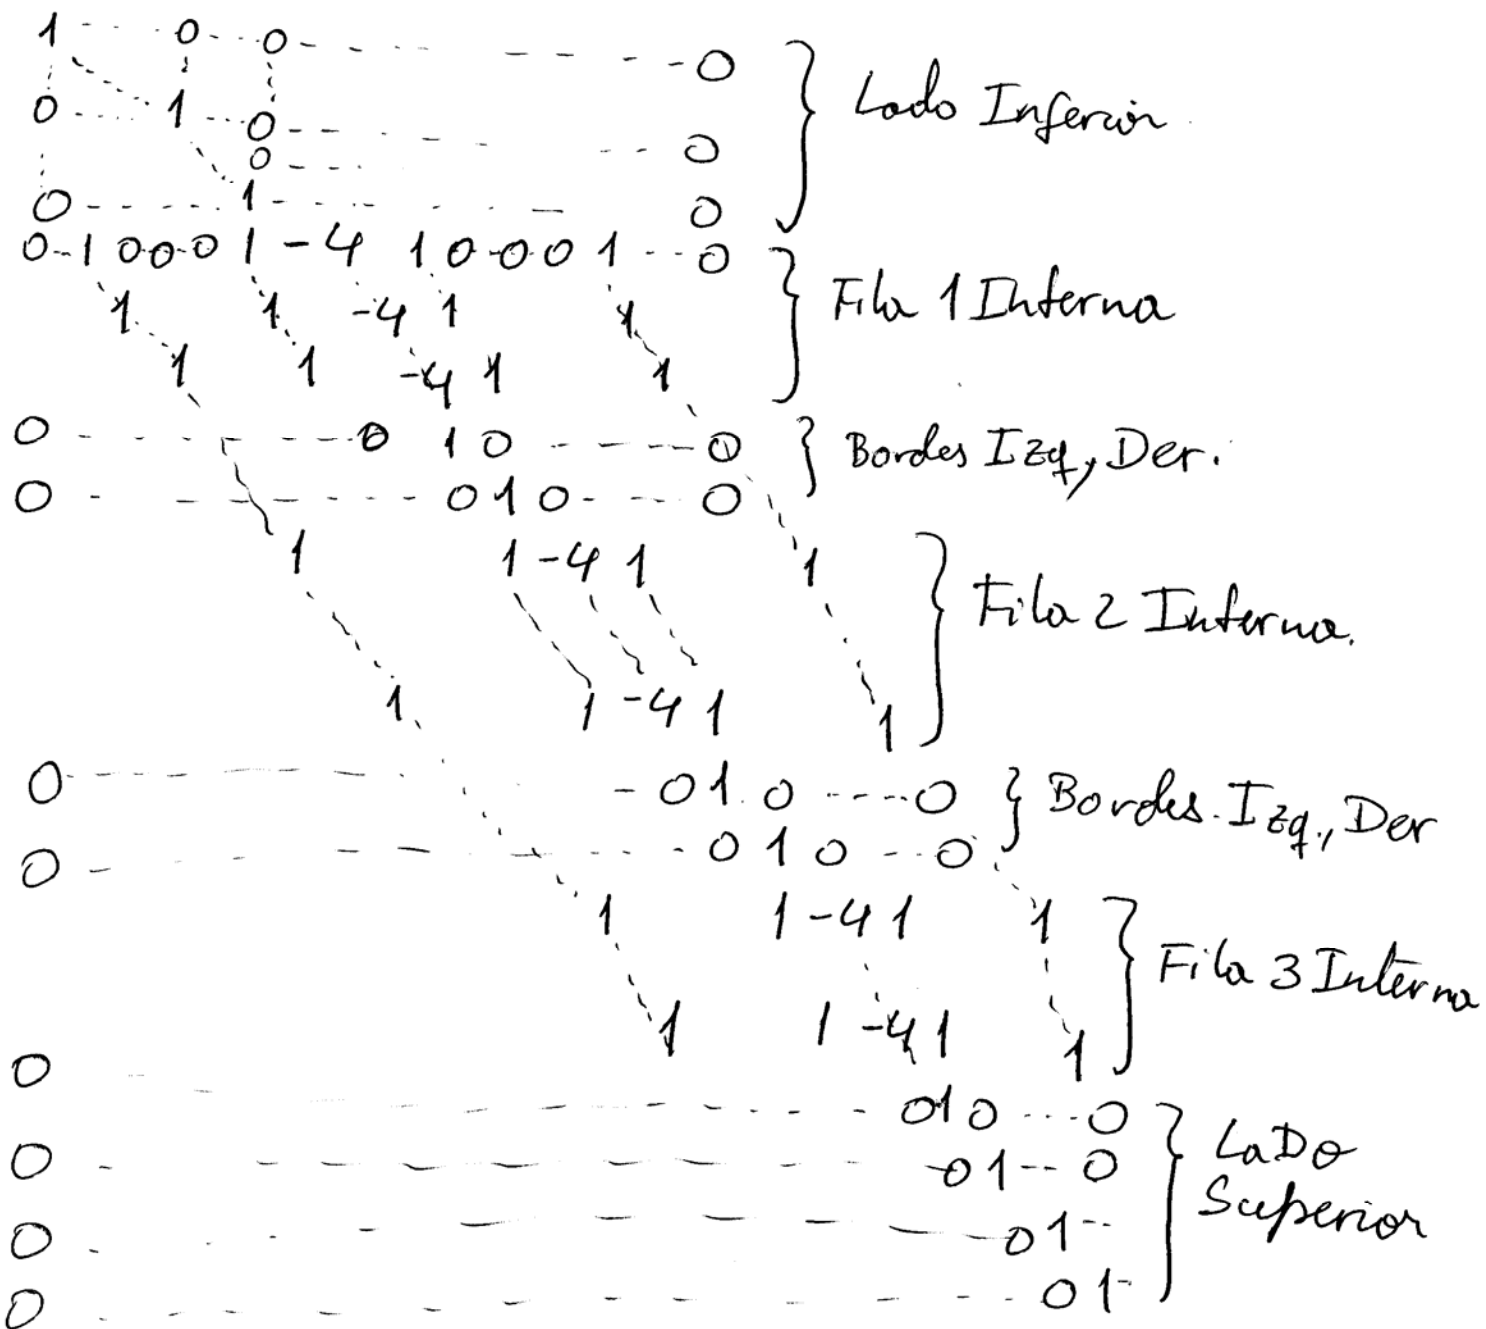 1 - - - 0 - - 0 - - - - - - - 0
0 - - - 1 - - 0 - - - - - - - 0
0 - - -
0 - - - - - 1 - - - - - - 0
Lado Inferior
0 - - 1 0 0 - 0 1 - 4 1 0 - 0 - 0 1 - - 0
1 1 -4 1 1
1 1 -4 1 1
Fila 1 Interna
0 - - - - 0 1 0 - - - - 0
0 - - - - - 0 1 0 - - - 0
Bordes Izq, Der.
1 1 -4 1 1
1 1 -4 1 1
Fila 2 Interna.
0 - - - - - - 0 1 0 - - - - 0
0 - - - - - - 0 1 0 - - 0
Bordes Izq., Der
1 1 -4 1 1
1 1 -4 1 1
Fila 3 Interna
0 - - - - - - 0 1 0 - - - 0
0 - - - - - - 0 1 - - 0
0 - - - - - - 0 1 - -
0 - - - - - - 0 1 -
LaDo
Superior